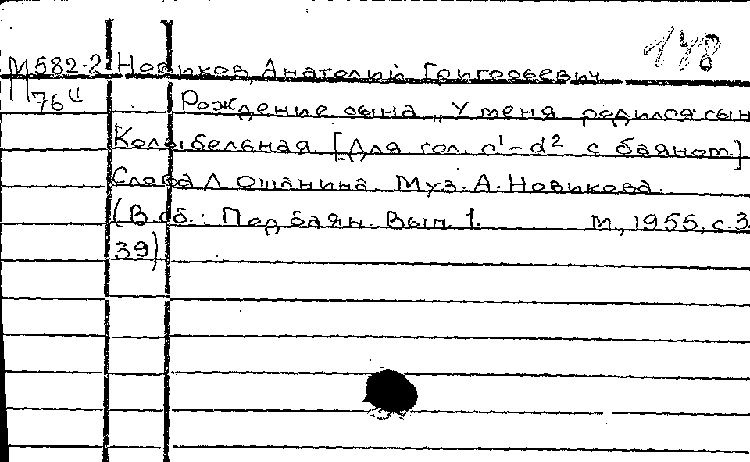 148
М582-2 Новиков, Анатолий Григорьевич
П 764 Рождение сына „У меня родился сын
Колыбельная [Для гол. c¹-d² с баяном]
Слова Л. Ошанина. Муз. А. Новикова.
(В сб.: Под баян. Вып. 1. М., 1955, с. 3
39)